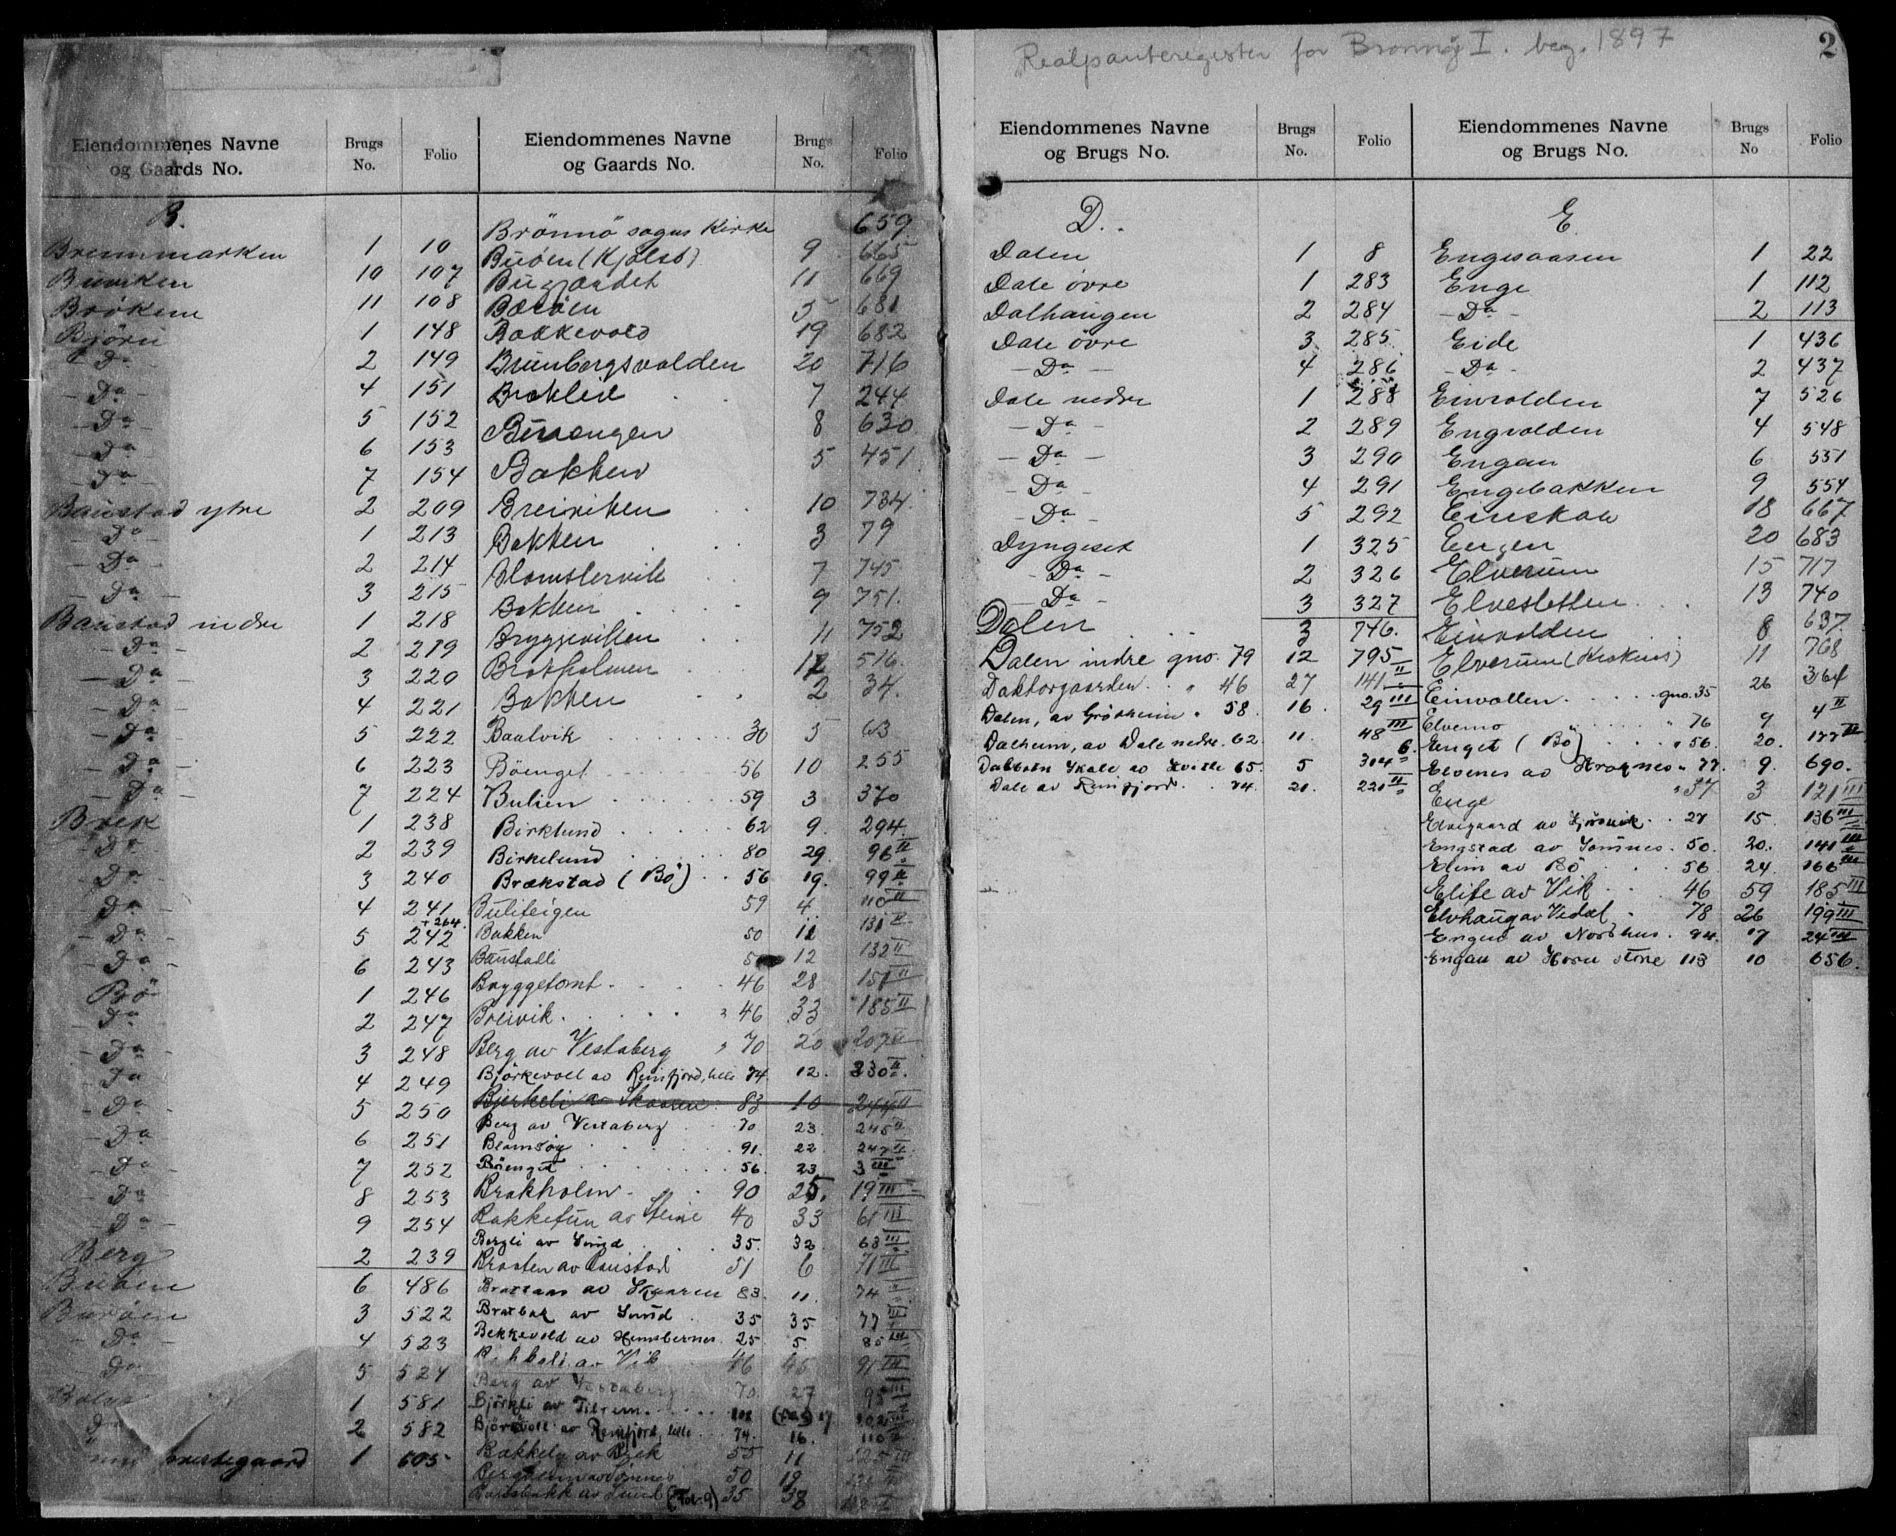 Realpanteregister for Brønnøy I. beg. 1897
2
Eiendommenes Navne og Gaards No. Brugs No. Folio
B.
Bremmarken 1 10
Burviken 10 107
11 108
Bjørn 1 148
- Do - 2 149
- Do - 4 151
- Do - 5 152
- Do - 6 153
- Do - 7 154
Baustad ytre 2 209
- Do - 1 213
- Do - 2 214
- Do - 3 215
Baustad indre 1 218
- Do - 2 219
- Do - 3 220
- Do - 4 221
- Do - 5 222
- Do - 6 223
- Do - 7 224
Brek 1 238
- Do - 2 239
- Do - 3 240
- Do - 4 241
- Do - 5 242 + 264
- Do - 6 243
Bö 1 246
- Do - 2 247
- Do - 3 248
- Do - 4 249
- Do - 5 250
- Do - 6 251
- Do - 7 252
- Do - 8 253
- Do - 9 254
Berg 2 239
6 486
Buröen 3 522
- Do - 4 523
- Do - 5 524
1 581
Do 2 582
prestegaard 1 605
Eiendommenes Navne og Gaards No. Brugs No. Folio
Brönnö sogns Kirke 659
Buöen (Kjölsö) 9 665
Bugjærdet 11 669
5 681
Bakkevold 19 682
Brunborgsvolden 20 716
Bræklid 7 244
8 630
Bakken 5 451
Breiviken 10 734
Bakken 3 79
Blomstervik 7 745
Bakken 9 751
Bryggeviken 11 752
Bratholmen 12 516
Bakken 2 34
Baalvik 30 5 63
Böenget 56 10 255
Bulien 59 3 370
Birklund 62 9. 294
Birkelund 80 29. 96 II
Brækstad (Bö) 56 19. 99 II
Buliteigen 59 4 110 II
Bakken 50 11 131 II
Baustadli 12 132 II
Bryggetomt 46 28 151 II
Breivik " 46 33 185 II
Berg av Vestaberg " 70 20 207 II
Björkevoll av Remfjord, lille 74 12. 230 II
Bjerkeli av Skaaren 83 10 244 II
Berg av Vestaberg 70 23. 245 II
Blomsøy 91. 22. 247 II
Böenget 56. 23 3 III
Brakholm 90 25. 19 III
Bakketun av Steine 40 33 61 III
Bergli av Sund 35. 32 63 III
Braaten av Baustad 51 6 71 III
Brattaas av Skaaren 83. 11 74
Bratbak av Sund 35 35 77 III
Bekkevold av Hemsternes 25 5 85 III
av Vik 46 45 91 III
Berg av Vestaberg 70 27 95
Björkli av Tilrem 108
Björkvoll av Remfjord, lille 74. 16. 110
Bakkely av Brek 55 11 125 III
Bergheim av Sömnes 50 19
av Sund (Fol. 9) 35 38
Eiendommenes Navne og Brugs No. Brugs No. Folio
D.
Dalen 1 8
Dale övre 1 283
Dalhaugen 2 284
Dale övre 3 285
- Do - 4 286
Dale nedre 1 288
- Do - 2 289
- Do - 3 290
- Do - 4 291
- Do - 5 292
Dyngeset 1 325
- Do - 2 326
- Do - 3 327
Dalen 3 746.
Dalen indre gno. 79 12 795
Daktorgaarden " 46 27 141 II
Dalen, av Grödheim " 58. 16. 29 III
Dalheim, av Dale nedre. 62. 11. 48 III
65. 5 304
Dale av Remfjord 74. 21. 221 II
Eiendommenes Navne og Brugs No. Brugs No Folio
E.
Engesaasen 1 22
Enge 1 112
- Do - 2 113
Eide 1 436
- Do - 2 437
Einvolden 7 526
Engvolden 4 548
Engan 6 551
Engebakken 9 554
Eineskaa 18 667
20 683
Elverum 15 717
Elvesletten 13 740
Einvolden 8 637
Elverum 11 768
Einvollen gno. 35 26 364
Elvemo " 76 9 4 II
Enget (Bö) " 56. 20. 177 II
Elvenes av " 77 9. 690.
Enge " 37 3 121 III
Elvegaard av 27 15. 136 III
Engstad av Sömnes 50. 20. 141 III
Elim av Bö 56 24. 166 III
Elife av Vik 46 59 185 III
Elvhaug av Vedal 78 26 199 III
av Nordhus 94. 17
Engan av Horn störe 113 10 656.